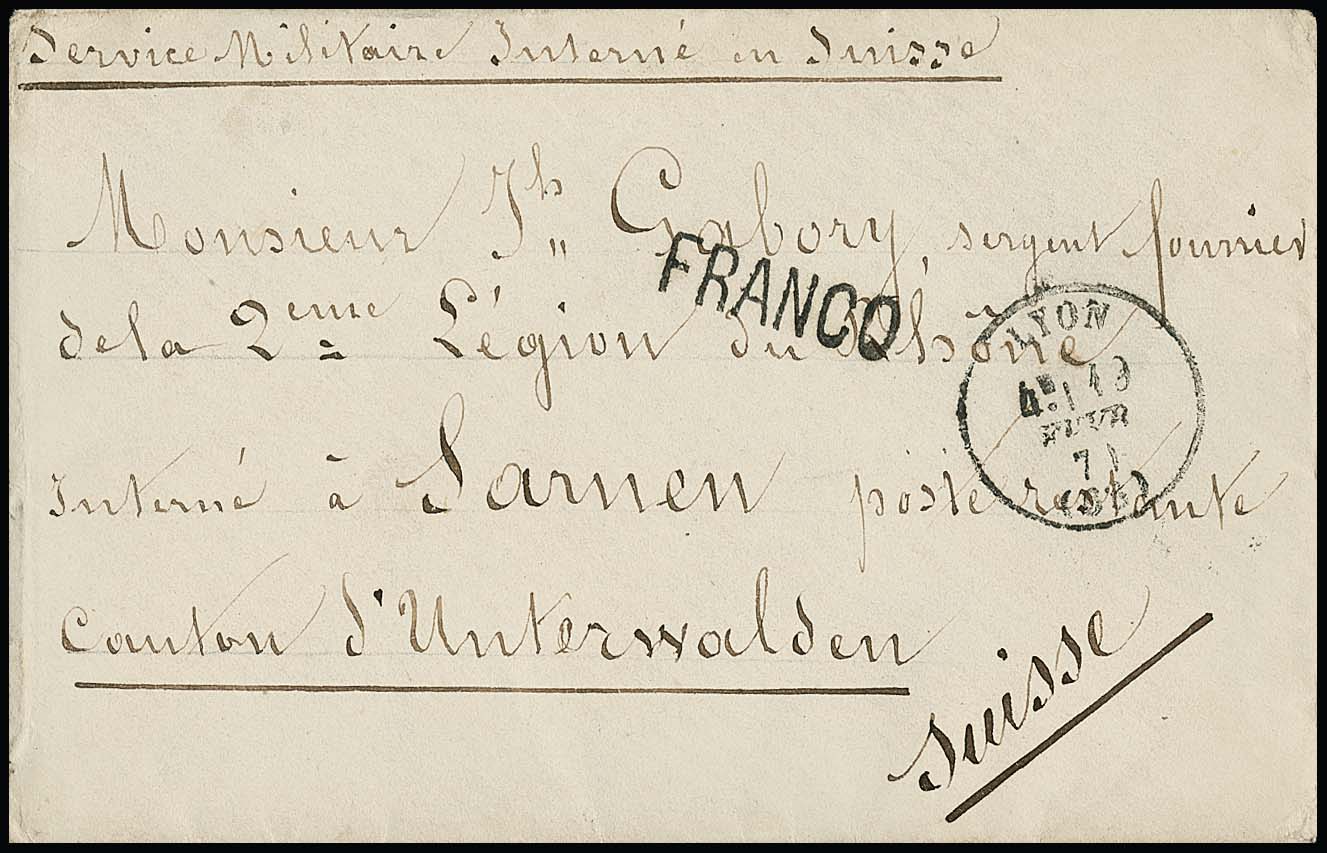 Service Militaire Interné en Suisse
Monsieur Jh Gabory, sergent fourrier
FRANCO
de la 2eme Légion du Rhône
LYON
4E 19
FEVR
71
Interné à Sarnen poste restante
Canton d'Unterwalden
Suisse